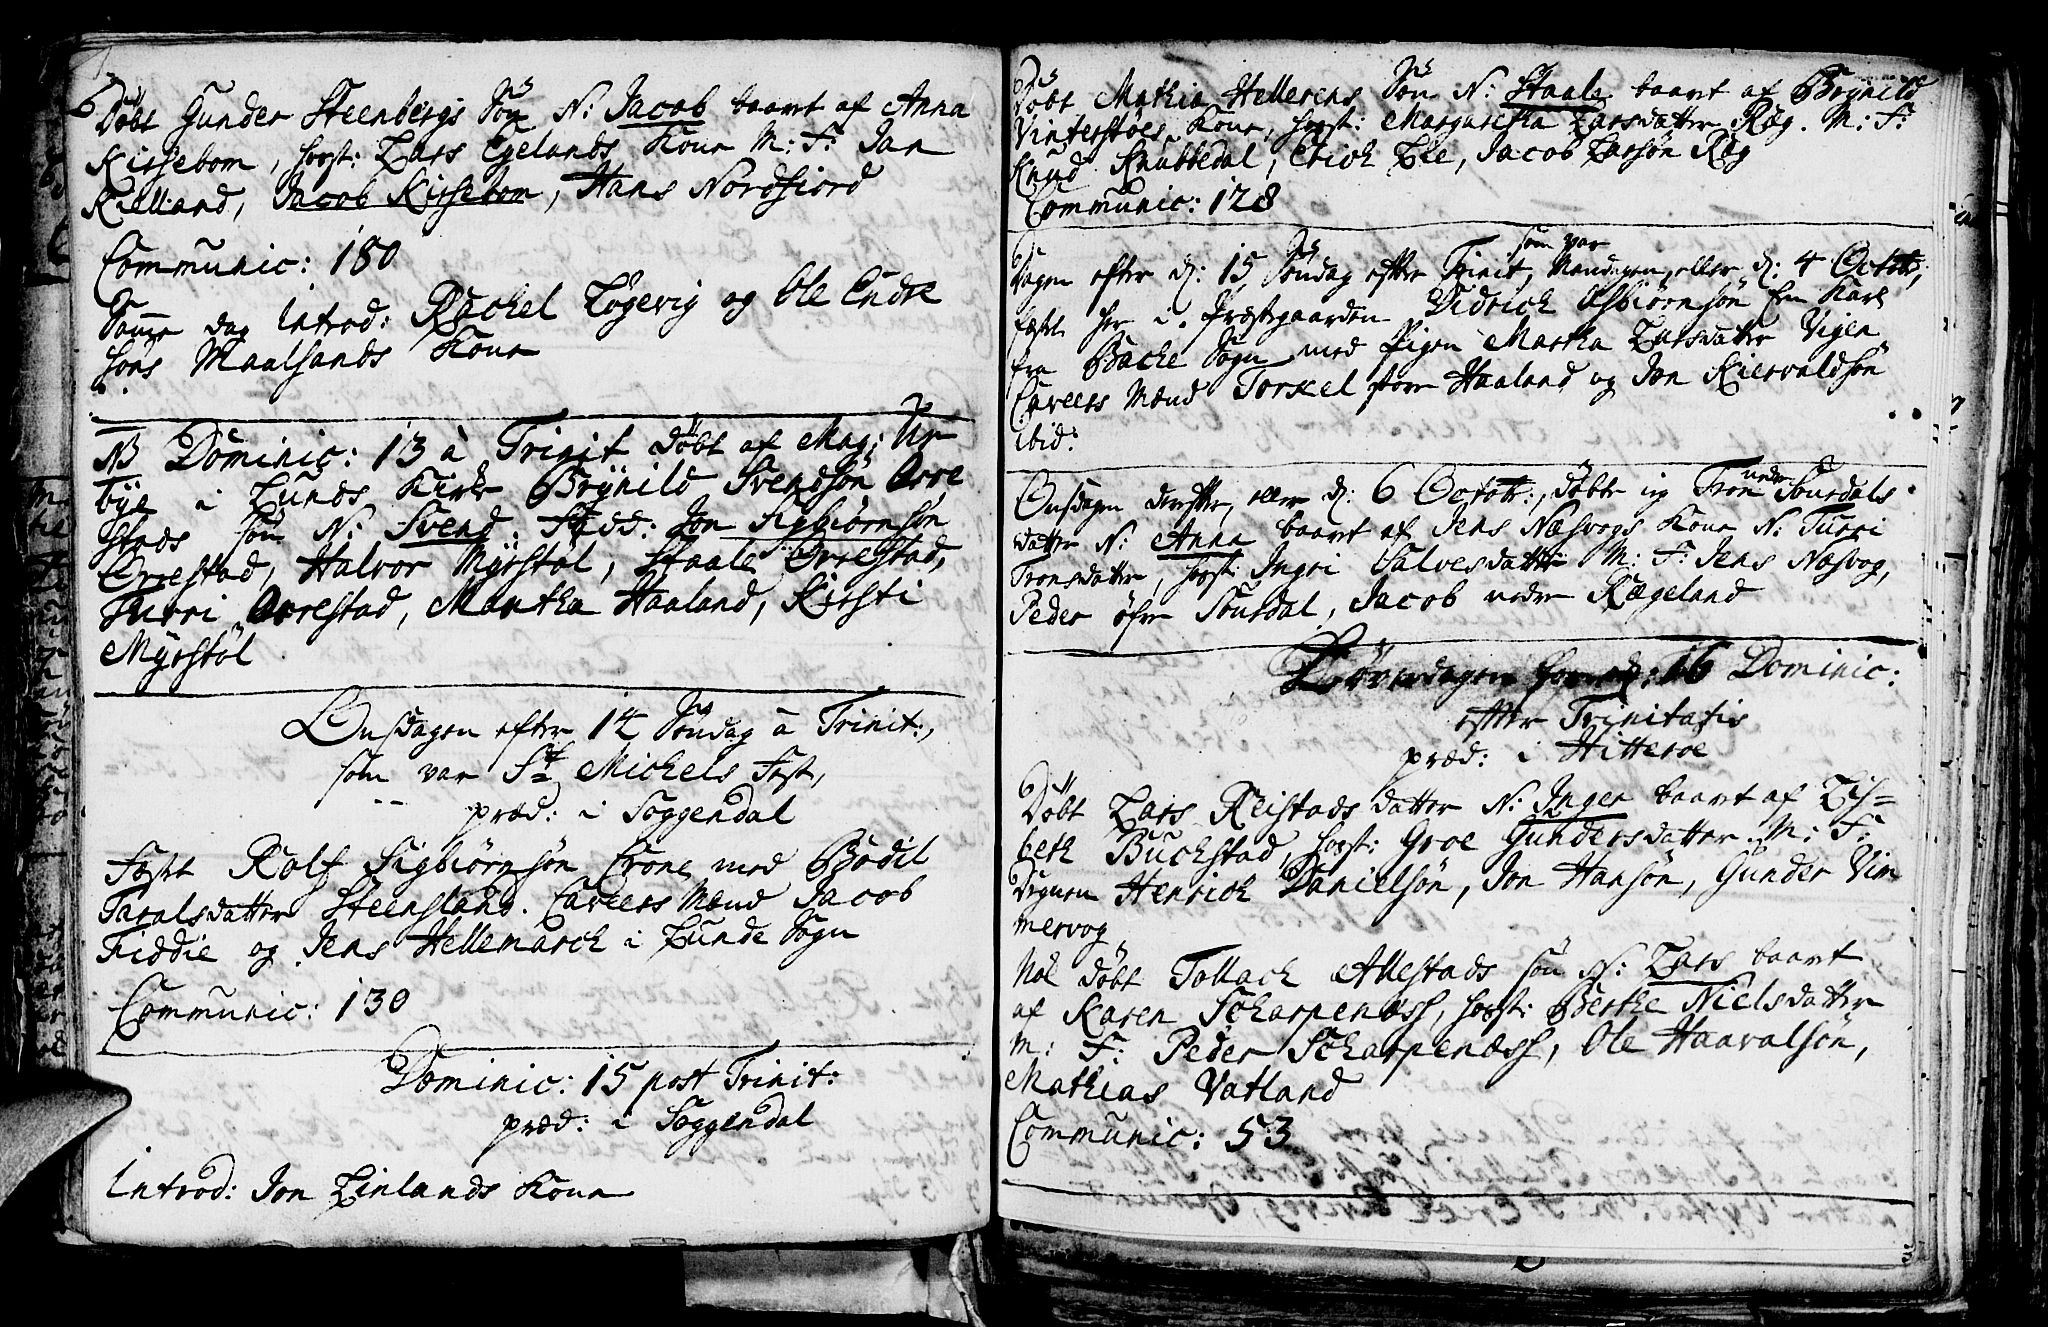 Døbt Gunder Steenbergs Søn N: Jacob baaret af Anna
Kirsebom, Host: Lars Egelands Kone M: F: Jan
Kielland, Jacob Kirsebom, Hans Nordfiord
Communic: 180
Samme dag Introd: Rachel Løgevig og Ole Endre
søns Maalsands Kone
NB Dominic: 13 à Trinit døbt af Mag: Ur
bye i Lunds Kirke Brynild Svendsøn Orre
stads søn N: Svend. Fadd: Jon Sigbiørnsøn
Orrestad, Halvor Myrstøl, Staale Orrestad,
Turri Orrestad, Martha Haaland, Kirsti
Myrstøl
Onsdagen efter 14 Søndag à Trinit:,
som var St Michels Fest,
præd: i Soggendal
Fæstet Rolf Sigbiørnsøn Crone med Bodil
Taralsdatter Steensland. Caveers Mænd Jacob
Fiddie og Jens Hellemarck i Lunde Sogn
Communic: 130
Dominic: 15 post Trinit:
præd: i Soggendal
Introd: Jon Linlands Kone
Døbt Mathia Hellerens Søn N: Staale baaret af Brynild
Vinterstøes Kone, Host: Margaretha Larsdatter Ræg. M: F:
Knud Knubbedal, Erich Lie, Jacob Larsøn Ræg
Communic: 128
Dagen efter d: 15 Søndag efter Trinit, som var Mandagen, eller d: 4 Octobr:,
fæstet her i Præstegaarden Didrich Asbiørnsøn En Karl
fra Backe Sogn med Pigen Martha Larsdatter Vigen
Caveers Mænd Torkel store Haaland og Jon Kiersvaldsøn
ibid:
Onsdagen derefter, eller d: 6 Octobr:, døbte ieg Tron nedre Sousdals
datter N: Anna baaret af Jens Næsvogs Kone N: Turri
Tronsdatter, Host: Ingri Salvesdatter M: F: Jens Næsvog,
Peder øfre Sousdal, Jacob nedre Rægeland
Løverdagen for d: 16 Dominic:
efter Trinitatis
præd: i Hitterøe
Døbt Lars Reistads datter N: Inger baaret af Lis=
beth Buckstad, Host: Groe Gundersdatter M: F:
Degnen Henrich Danielsøn, Jon Hansøn, Gunder Vim
mervog
Nok døbt Tollach Allestads søn N: Lars baaret
af Karen Scharpenæss, Host: Berthe Nielsdatter
M: F: Peder Scharpenæss, Ole Haavalsøn,
Mathias Vatland
Communic: 53